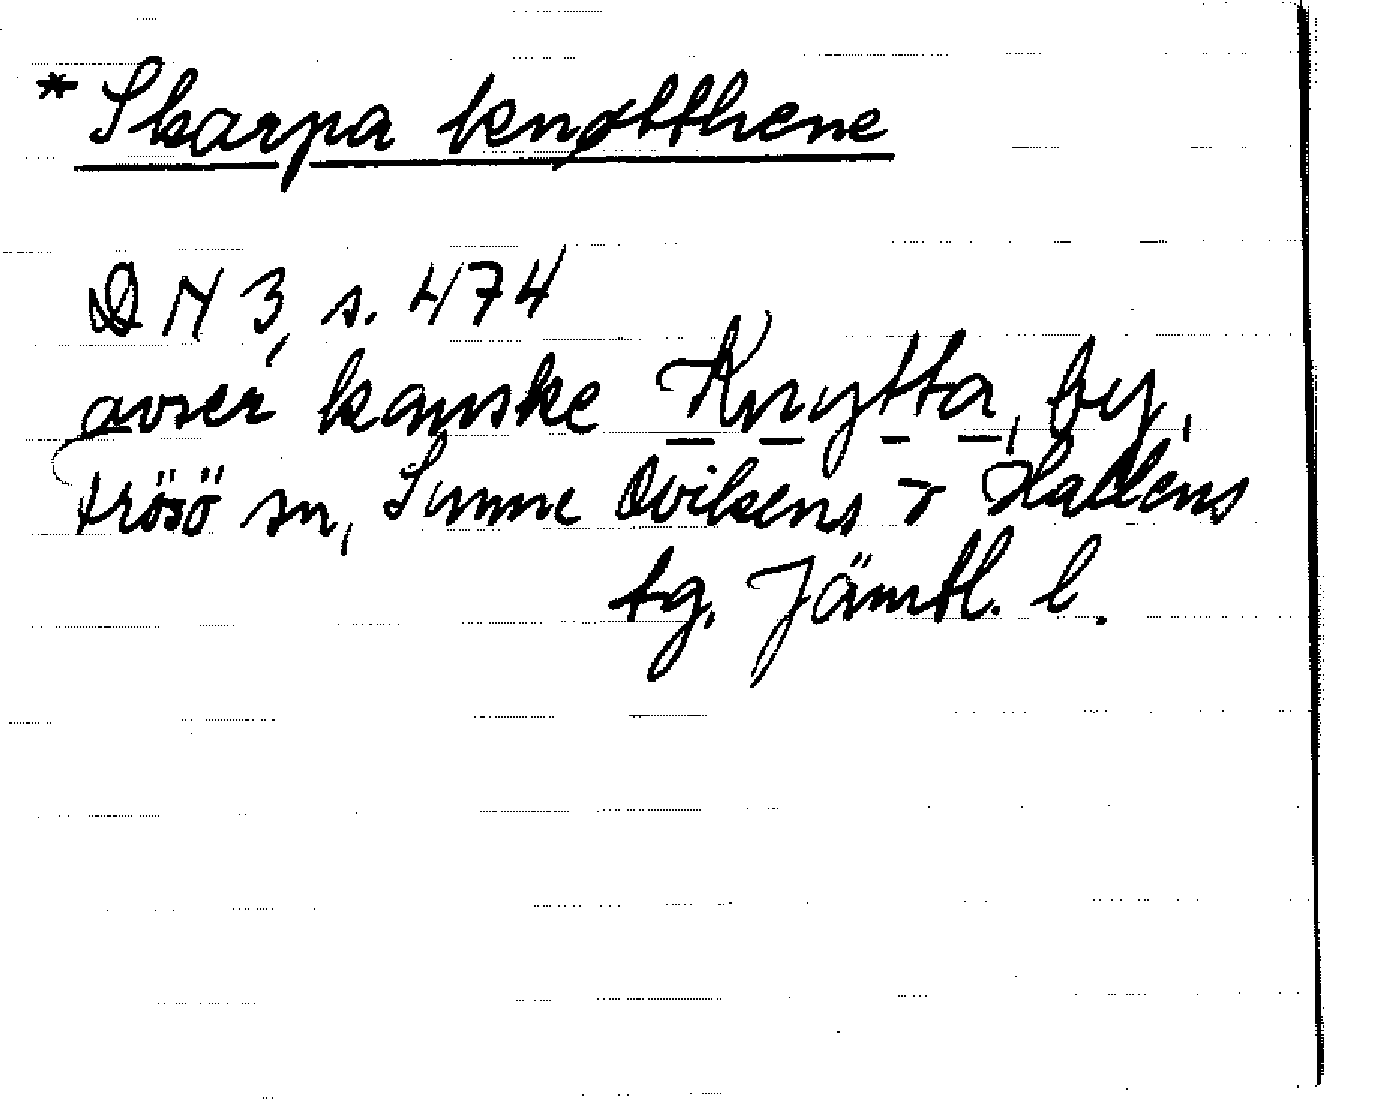 * Skarpa knøtthene
DN 3, s. 474
avser kanske Knytta, by,
Frösö sn, Sunne Ovikens o Hallens
tg. Jämtl. l.